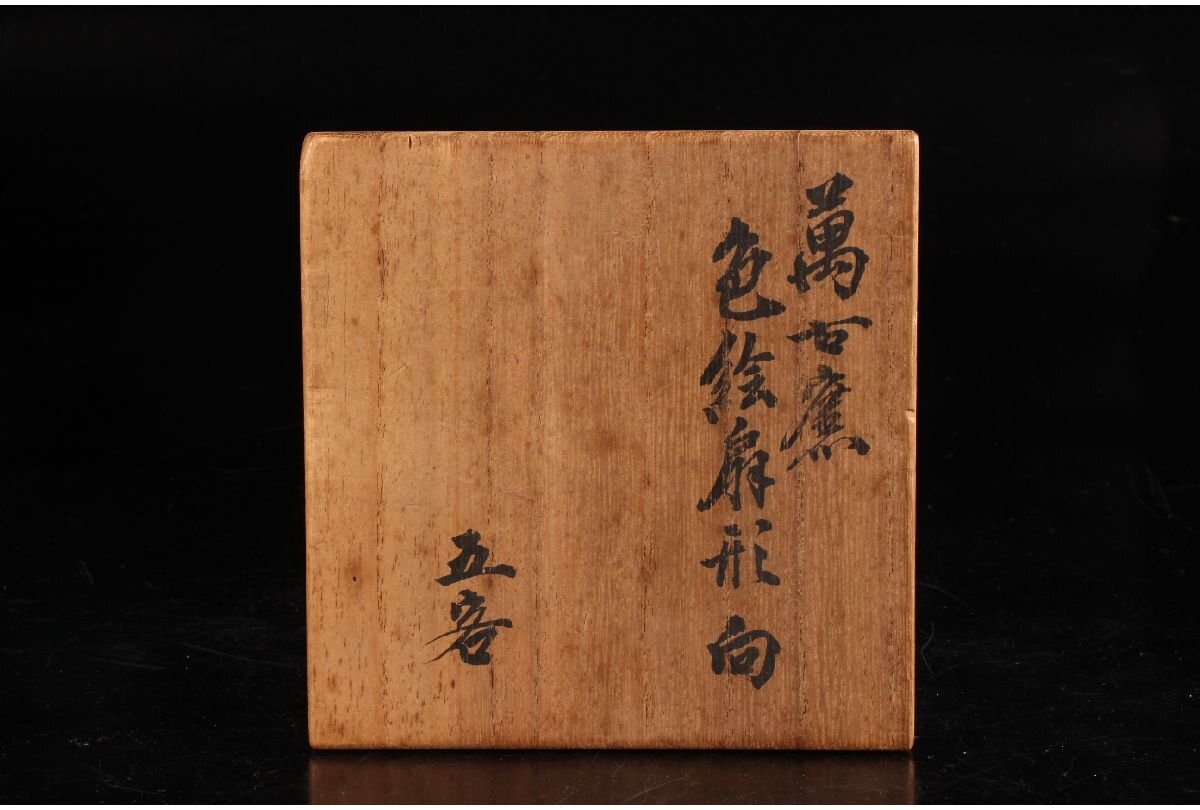 萬古窯
色絵扇形向
五客